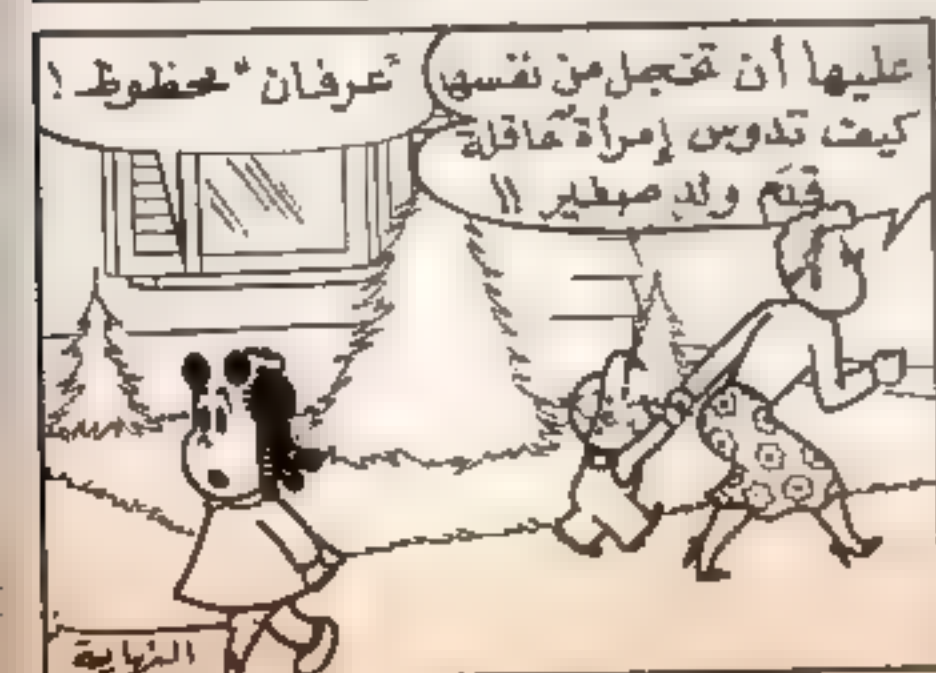 عليها أن تخجل من نفسها
كيف تدوس إمرأة عاقلة
قدم ولد صغير !!
"عرفان" محظوظ !
النهاية